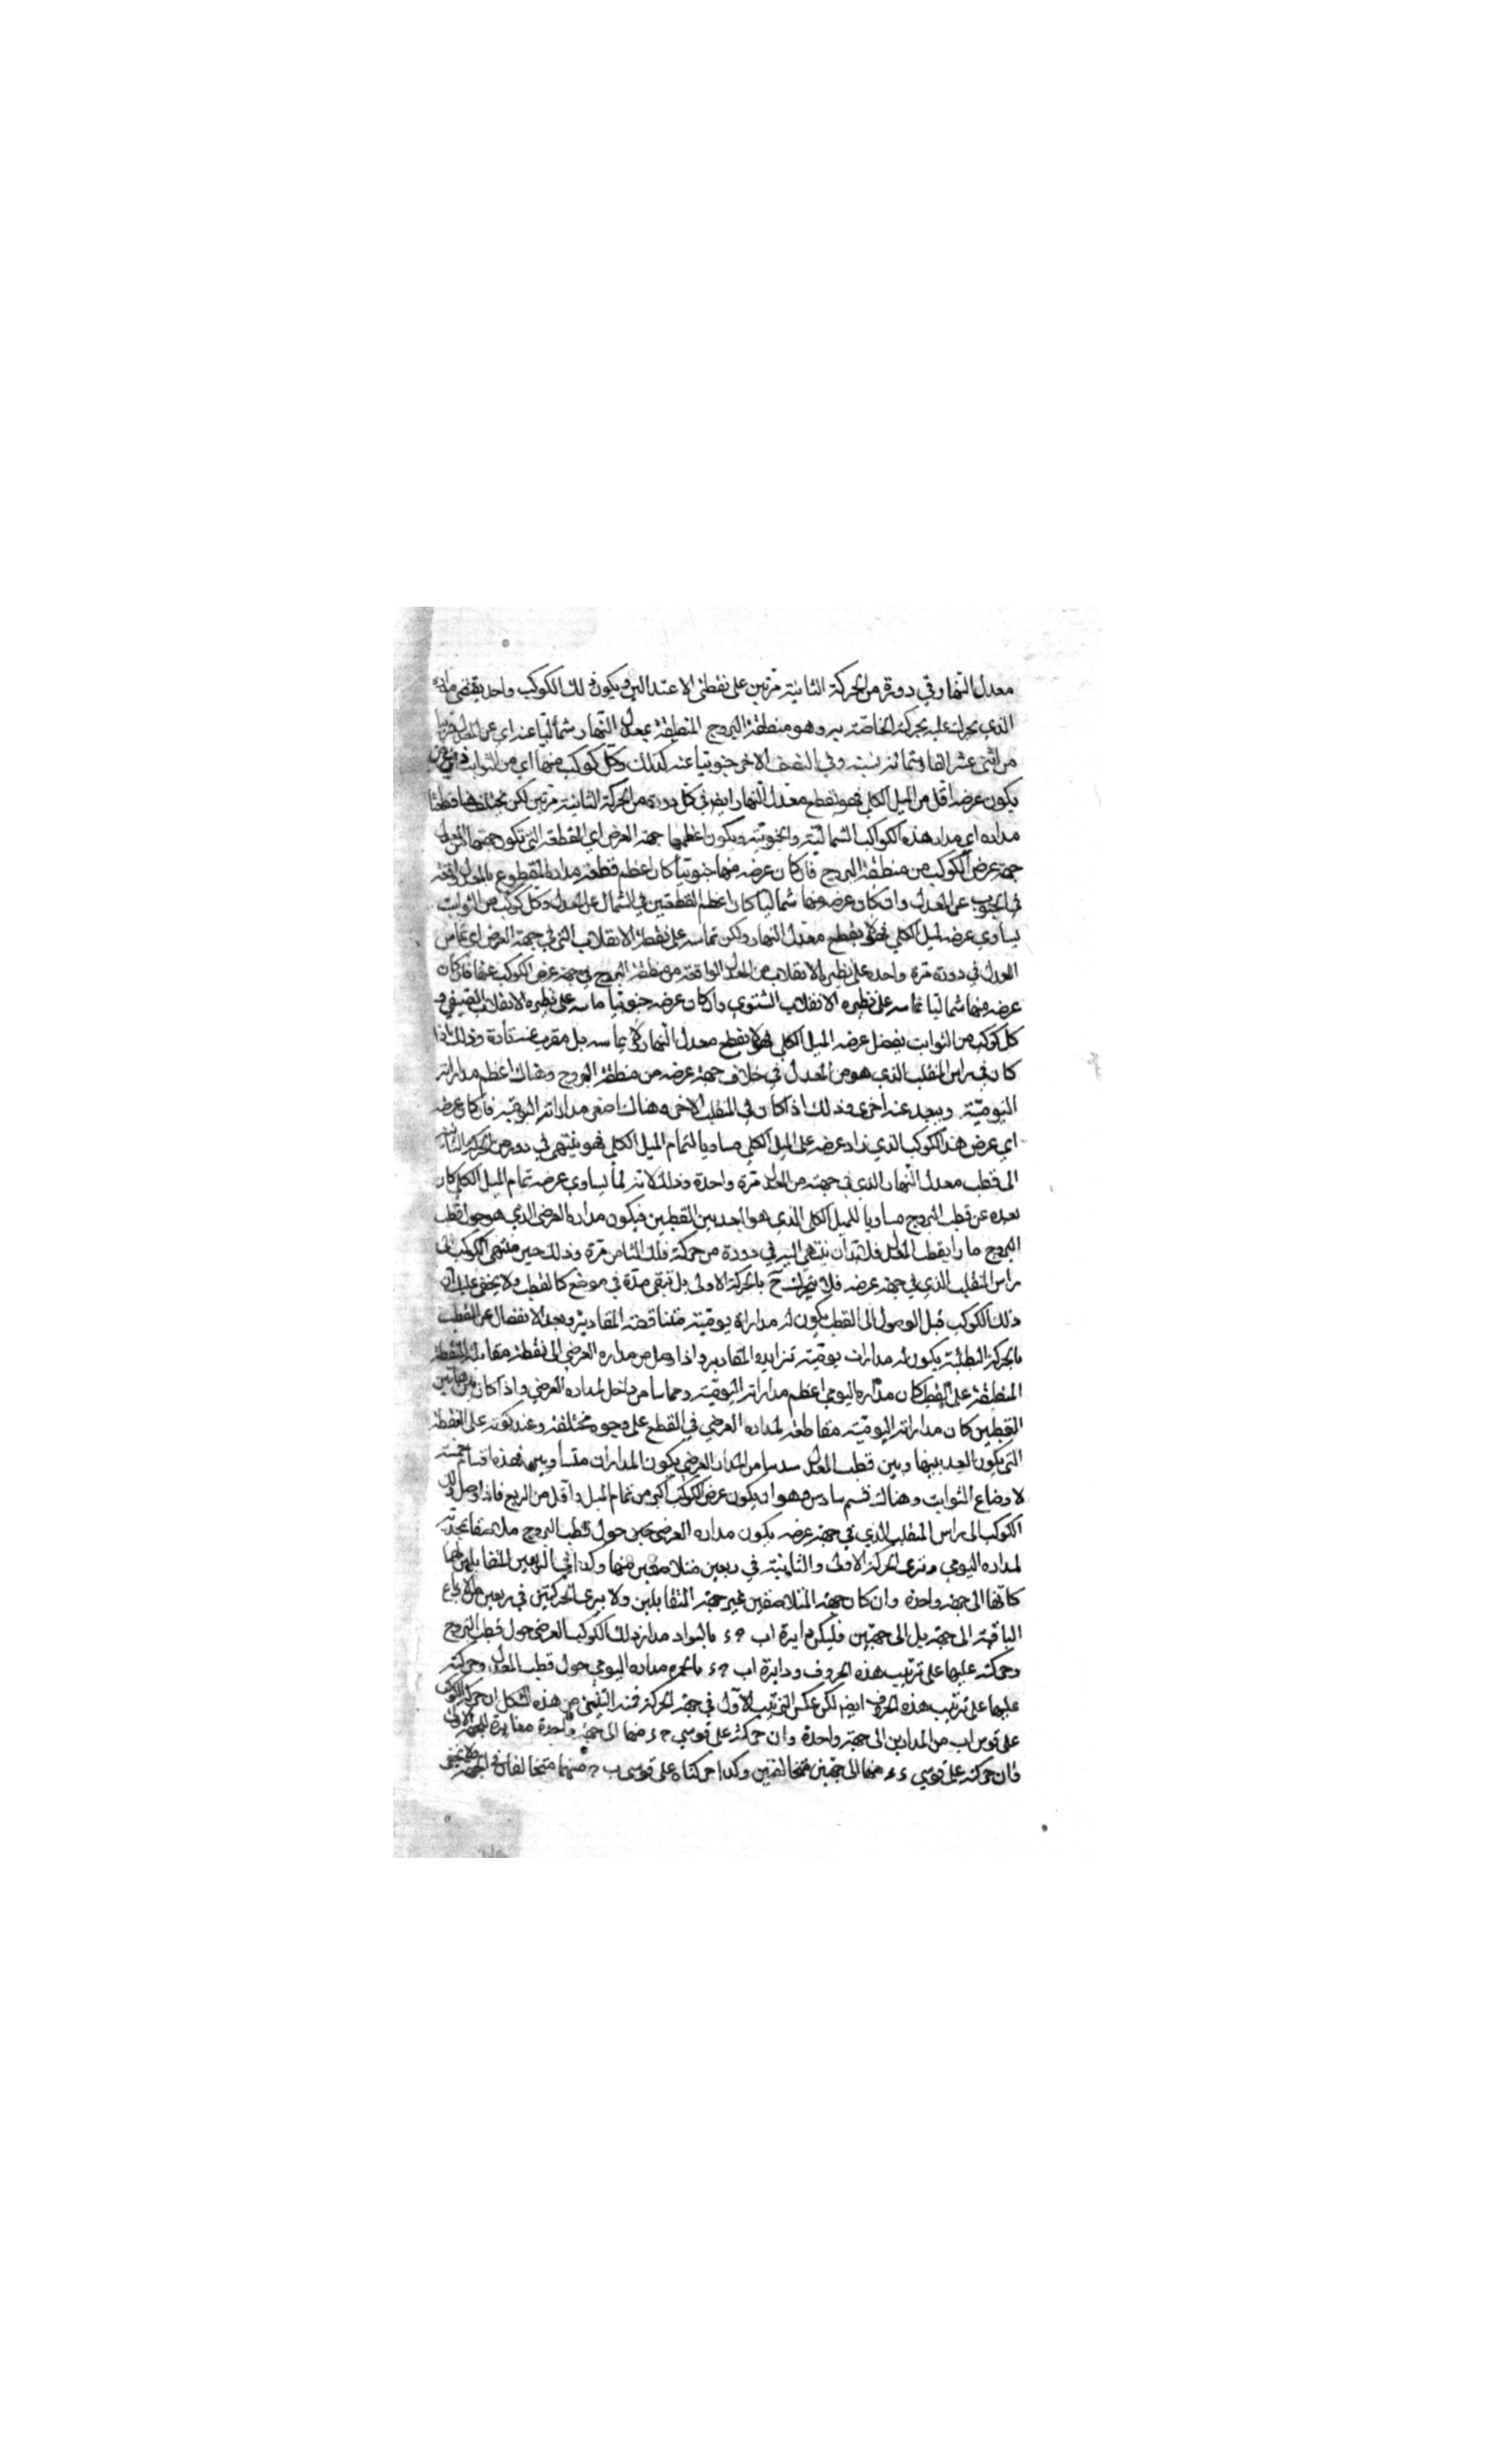 معدل النهار في دورة من الحركة الثانية مرتين على نقطتي الاعتدالين ويكون ذلك الكوكب واحد
الذي يحركه عليه بحركة الخاصة به وهو منطقة البروج المنطبقة بمعدل النهار شماليا عنه اي عن المعدل قريبا
من اثني عشر الفا وثمانمائة سنة وفي النصف الاخر جنوبيا عنه كذلك وكل كوكب منها اي من الثوابت
يكون عرضه اقل من الميل الكلي فهو يقطع معدل النهار ايضا في كل دورة من الحركة الثانية مرتين لكن يختلف قطعتا
مداره اي مدار هذه الكواكب الشمالية والجنوبية ويكون اعظمهما جهة العرض اي القطعة التي تكون جهتها
جهة عرض الكوكب من منطقة البروج فان كان عرضه منها جنوبيا كان اعظم قطعة مداره المقطوع بالمعدل
في الجنوب عن المعدل وان كان عرضه منها شماليا كان اعظم القطعتين في الشمال عن المعدل وكل كوكب من الثوابت
يساوي عرضه الميل الكلي فهو لا يقطع معدل النهار ولكن تماسه على نقطة الانقلاب التي في جهة العرض اي تماس
المعدل في دورة مرة واحدة على نظيرة الانقلاب من المعدل الواقعة من منطقة البروج في جهة عرض الكوكب عنها فان كان
عرضه منها شماليا تماسه على نظيره الانقلاب الشتوي وان كان عرضه جنوبيا ماسه على نظيره الانقلاب الصيفي و
كل كوكب من الثوابت يفضل عرضه الميل الكلي فهو لا يقطع معدل النهار ولا يماسه بل يقرب منه تارة وذلك اذا
كان في راس المنقلب الذي هو من المعدل في خلاف جهة عرضه من منطقة البروج وهناك اعظم مداراته
اليومية ويبعد عنه اخرى وذلك اذا كان في المنقلب الاخر وهناك اصغر مداراته اليومية فان كان عرضه
اي عرض هذا الكوكب الذي زاد عرضه على الميل الكلي مساويا لتمام الميل الكلي فهو ينتهي في دورة من الحركة الثانية
الى قطب معدل النهار الذي في جهته من المعدل مرة واحدة وذلك لانه لما يساوي عرضه تمام الميل الكلي كان
بعده عن قطب البروج مساويا للميل الكلي الذي هو البعد بين القطبين فيكون مداره العرضي الذي هو حول قطب
البروج مارا بقطب المعدل فلا بد ان ينتهي اليه في دورة من حركة فلك الثامن مرة وذلك حين منتهى الكوكب الى
راس المنقلب الذي في جهة عرضه فلا يتحرك ح بالحركة الاولى بل تبقى مدة في موضع كالقطب ولا يخفى عليك ان
ذلك الكوكب قبل الوصول الى القطب يكون له مدارات يومية متناقصة المقادير وبعد الانفصال عن القطب
بالحركة البطيئة يكون له مدارات يومية تزايدة المقادير واذا وصل من مداره العرضي الى نقطة مقابلة للنقطة
المنطبقة على القطب كان مداره اليومي اعظم مداراته اليومية ومماسا من داخل لمداره العرضي واذا كان
القطبين كان مداراته اليومية مقاطعة لمداره العرضي في القطع على وجوه مختلفة وعند كونه على النقطة
التي يكون البعد بينها وبين قطب المعدل سدسا من المدار العرضي يكون المداران متساويين فهذه اقسام خمسة
لاوضاع الثوابت وهناك قسم سادس وهو ان يكون عرض الكوكب اكبر من تمام الميل واقل من الربع فاذا وصل ذلك
الكوكب الى راس المنقلب الذي في جهة عرضه يكون مداره العرضي حين حول قطب البروج ملاصقا
لمداره اليومي وترى الحركة الاولى والثانية في ربعين متلاصقين منها وكذا في الربعين المتقابلين
كانها الى جهة واحدة وان كان جهة المتلاصقين غير جهة المتقابلين ولا يرى الحركتين في ربعين من الارباع
الباقية الى جهة بل الى جهتين فليكن دايرة اب ح د بالسواد مدار ذلك الكوكب العرضي حول قطب البروج
وحركته عليها على ترتيب هذه الحروف ودايرة اب ح د بالحمرة مداره اليومي حول قطب المعدل وحركته
عليها على ترتيب هذه الحروف ايضا لكن عكس الترتيب الاول في جهة الحركة فنه التبيين من هذه الشكل ان حركة الكوكب
على قوس اب من المدارين الى جهة واحدة وان حركته على قوسي ح د منهما الى جهة واحدة مغايرة للجهة الاولى
فان حركته على قوسي د ء منهما الى جهتين متخالفتين وكذا حركتاه على قوسي ب ح منهما متخالفان في الجهة